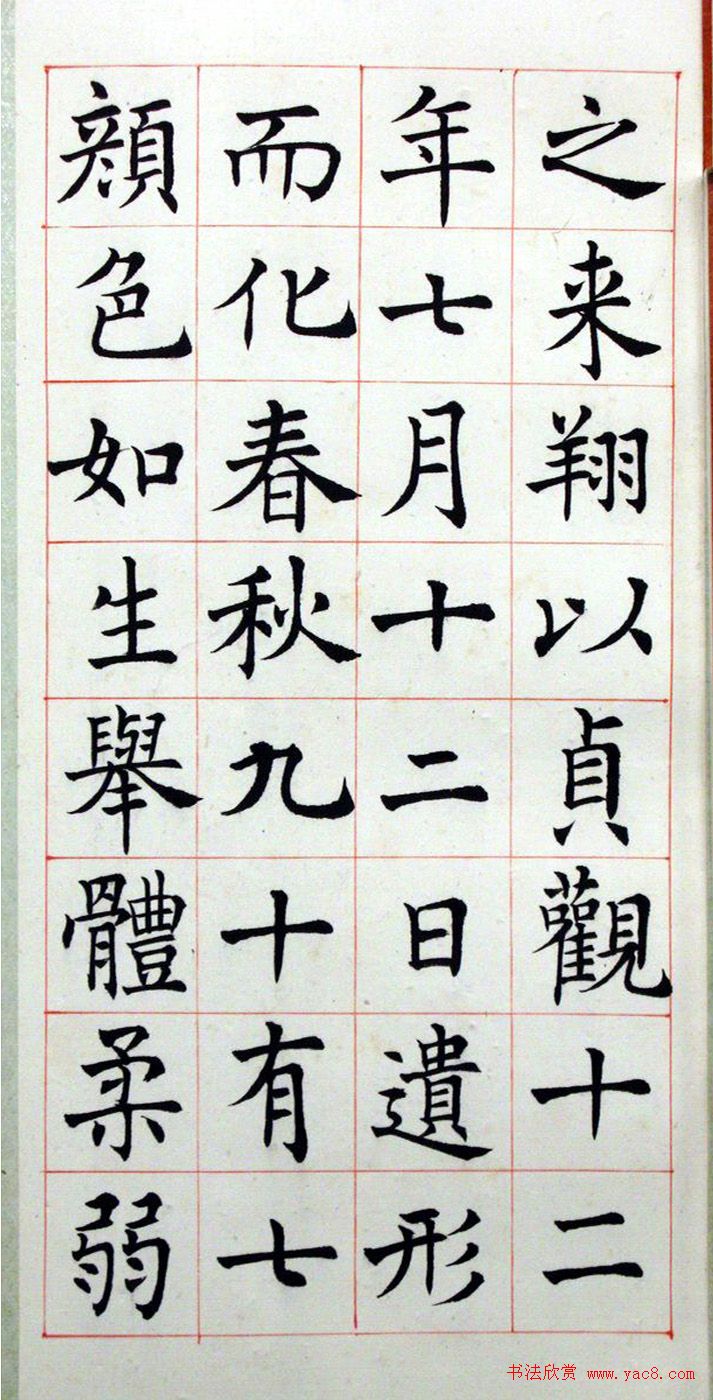 之来翔以貞觀十二
年七月十二日遺形
而化春秋九十有七
顔色如生舉體柔弱
书法欣赏 www.yac8.com